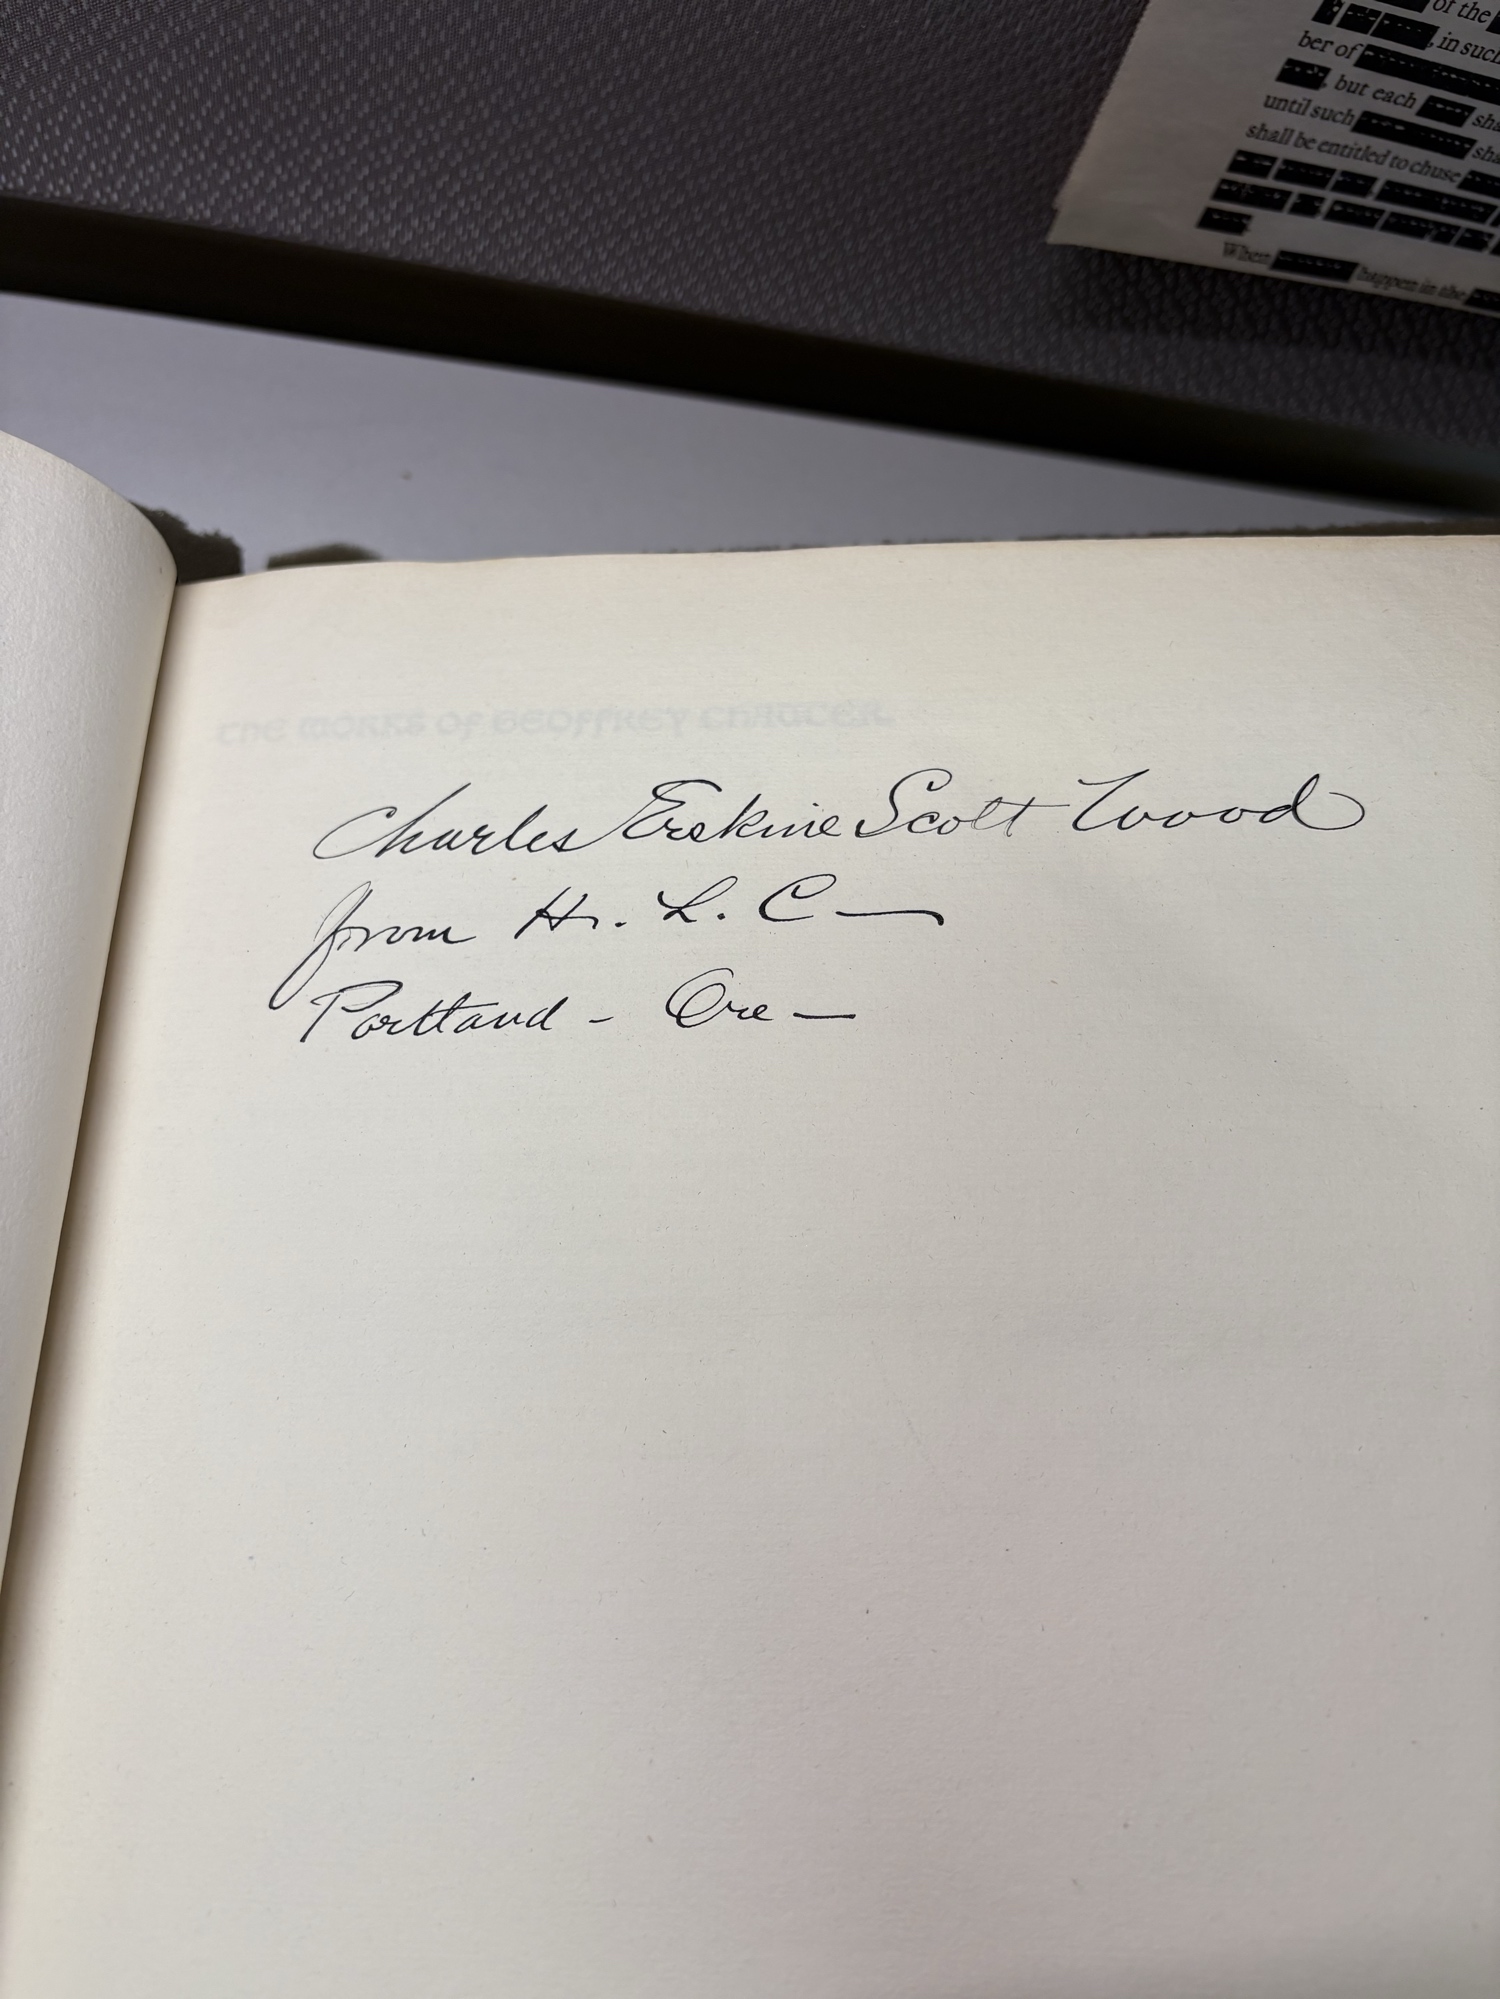 of the
, in such
ber of
, but each
until such
shall be entitled to chuse
When happen in the
THE WORKS OF GEOFFREY CHAUCER
Charles Erskine Scott Wood
from H. L. C —
Portland - Ore —